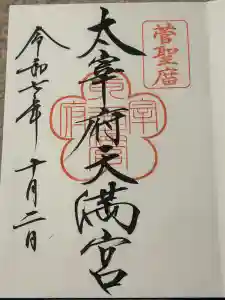 菅聖廟
太宰府天満宮
令和七年
十月二日